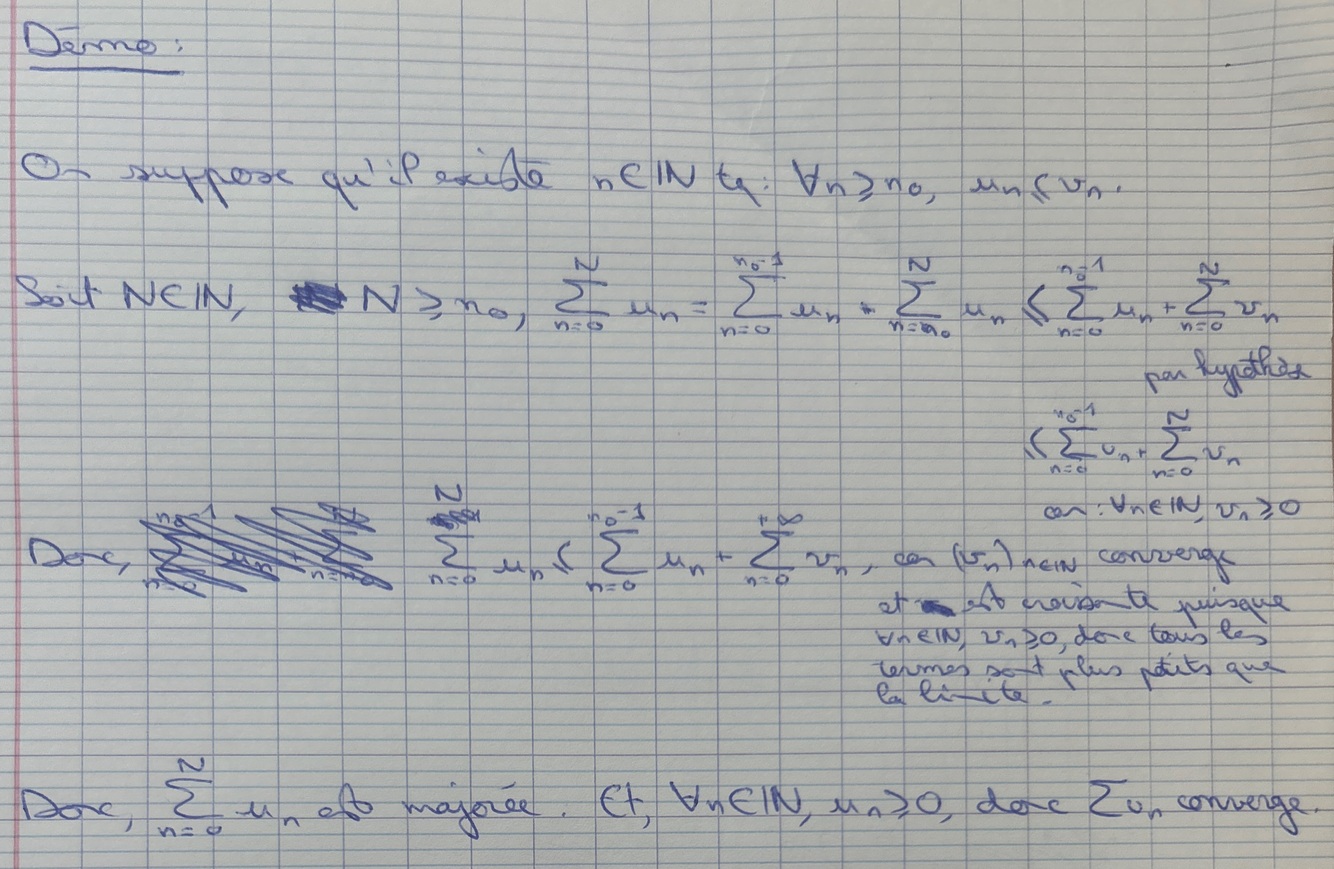 Démo :
On suppose qu'il existe n∈ℕ tq. ∀n ≥ n₀, uₙ ≤ vₙ.
Soit N∈ℕ, N ≥ n₀, ∑_{n=0}^{N} uₙ = ∑_{n=0}^{n₀-1} uₙ + ∑_{n=n₀}^{N} uₙ ≤ ∑_{n=0}^{n₀-1} uₙ + ∑_{n=0}^{N} vₙ
par hypothèse
≤ ∑_{n=0}^{n₀-1} uₙ + ∑_{n=0}^{N} vₙ
car : ∀n∈ℕ, vₙ ≥ 0
Donc, ∑_{n=0}^{N} uₙ ≤ ∑_{n=0}^{n₀-1} uₙ + ∑_{n=0}^{+∞} vₙ, car (vₙ)_{n∈ℕ} converge
et est croissante puisque
∀n∈ℕ, vₙ ≥ 0, donc tous les
termes sont plus petits que
la limite.
Donc, ∑_{n=0}^{N} uₙ est majorée. Et, ∀n∈ℕ, uₙ ≥ 0, donc ∑uₙ converge.